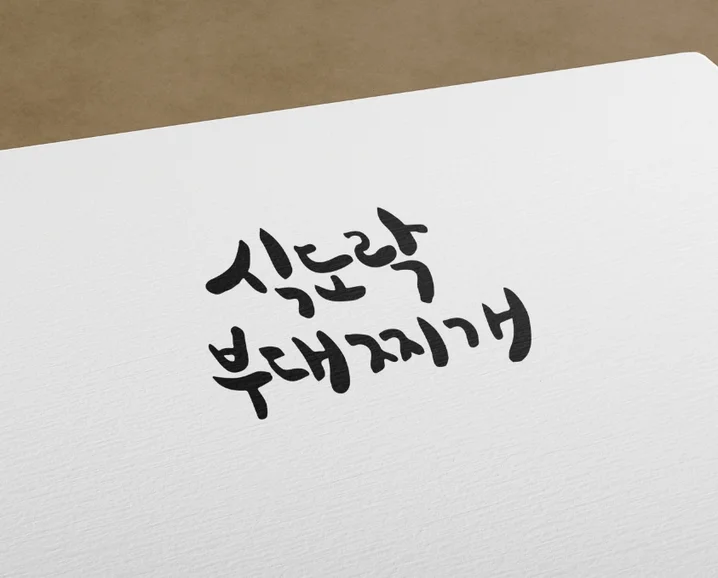 식도락
부대찌개